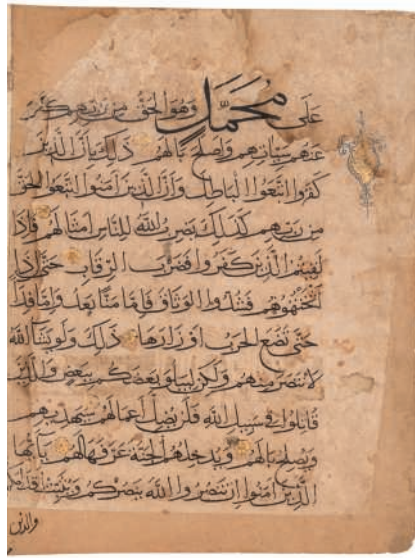 على محمد وهو الحق من ربهم كفر
عنهم سياتهم واصلح بالهم ذلك بان الذين
كفروا اتبعوا الباطل وان الذين امنوا اتبعوا الحق
من ربهم كذلك يضرب الله للناس امثالهم فاذا
لقيتم الذين كفروا فضرب الرقاب حتى اذا
اثخنتموهم فشدوا الوثاق فاما منا بعد واما فدا
حتى تضع الحرب اوزارها ذلك ولو يشا الله
لانتصر منهم ولكن ليبلو بعضكم ببعض والذين
قاتلوا في سبيل الله فلن يضل اعمالهم سيهديهم
ويصلح بالهم ويدخلهم الجنة عرفها لهم يايها
الذين امنوا ان تنصروا الله ينصركم ويثبت اقدامكم
والذين